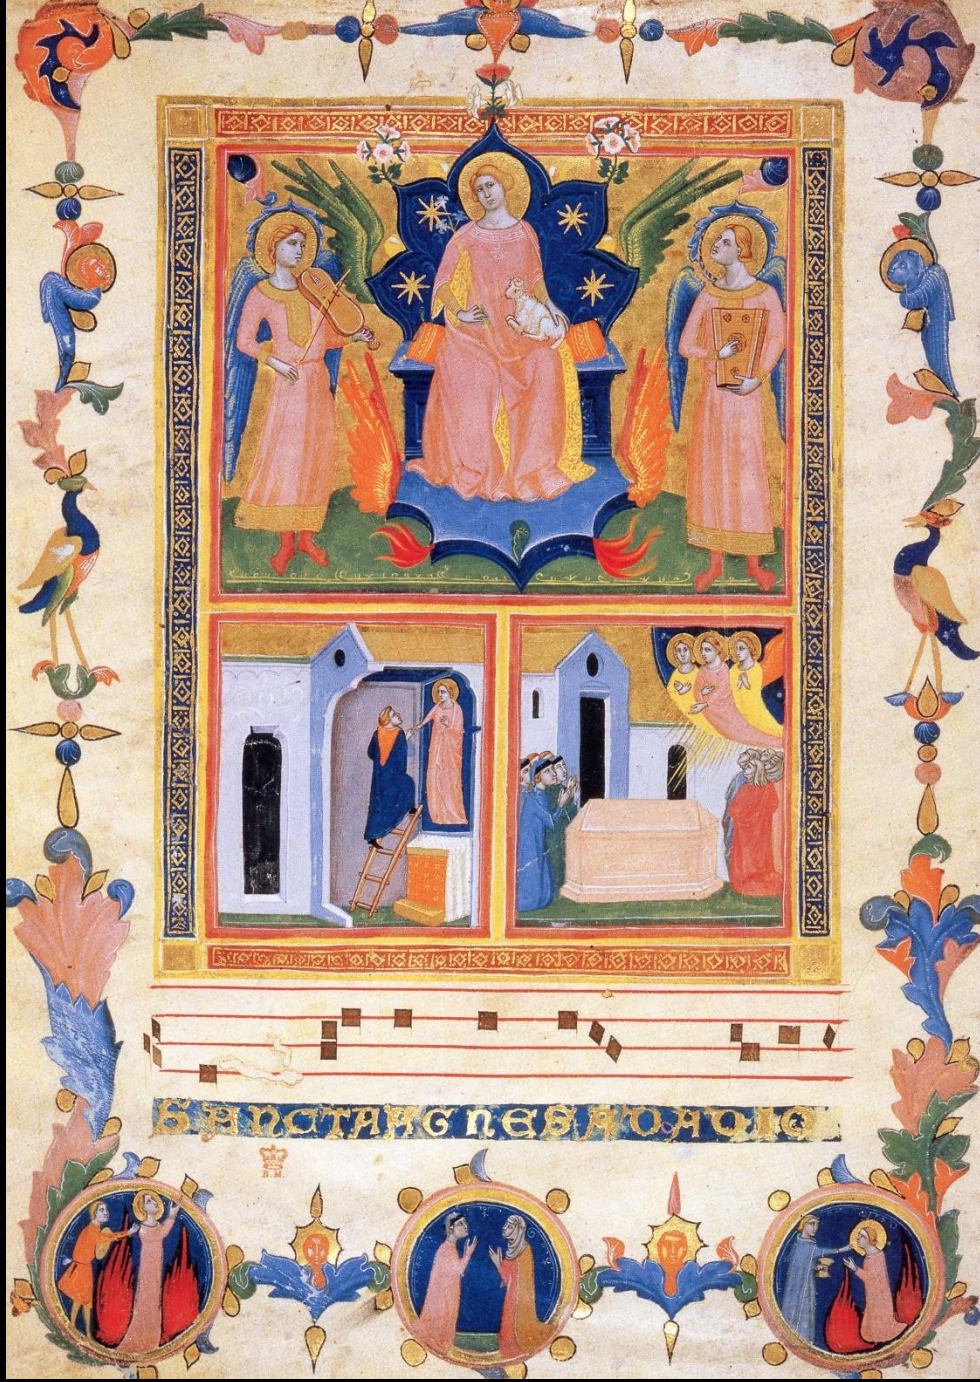 SANCTA AGNESA DA DIO
B.M.